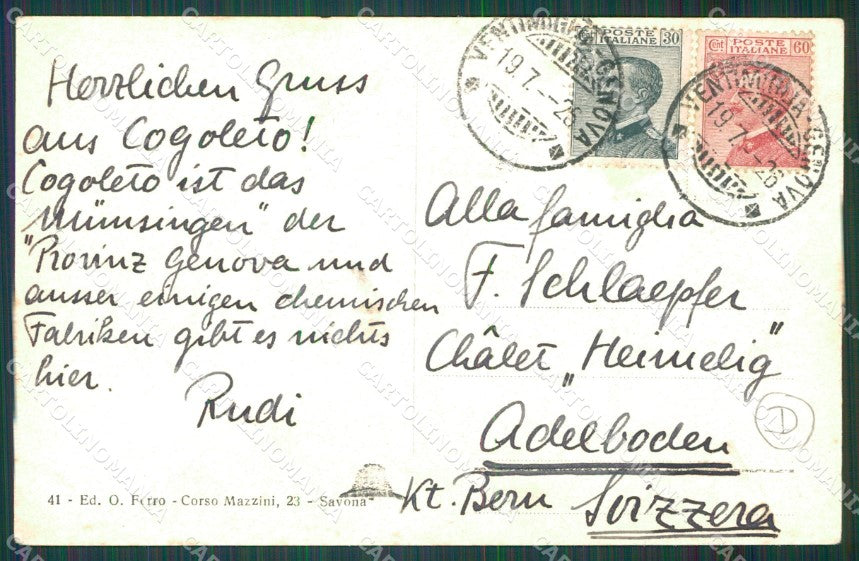 Herzlichen Gruss
aus Cogoleto!
Cogoleto ist das
"Münsingen" der
Provinz Genova und
ausser einigen chemischen
Fabriken gibt es nichts
hier.
Rudi
41 - Ed. O. Ferro - Corso Mazzini, 23 - Savona
VENTIMIGLIA-GENOVA
19.7.--26
Cent POSTE 30
ITALIANE
VENTIMIGLIA-GENOVA
19.7.--26
Cent POSTE 60
ITALIANE
Alla famiglia
F. Schlaepfer
Châlet „Heimelig"
Adelboden
Kt. Bern Svizzera
D
CARTOLINOMANIA